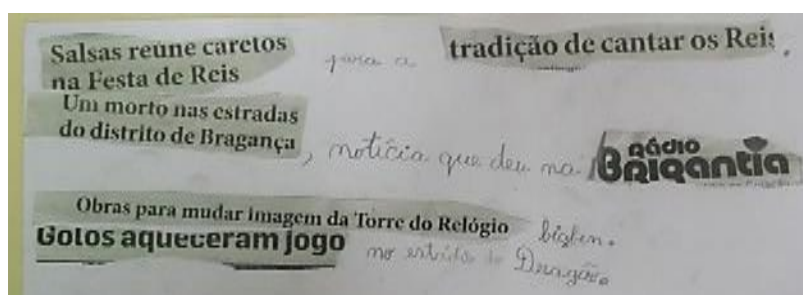 Salsas reúne caretos
na Festa de Reis para a tradição de cantar os Reis.
Um morto nas estradas
do distrito de Bragança, notícia que deu na RÁDIO BRIGANTIA
Obras para mudar imagem da Torre do Relógio bigben.
Golos aqueceram jogo no estádio do Deragão.